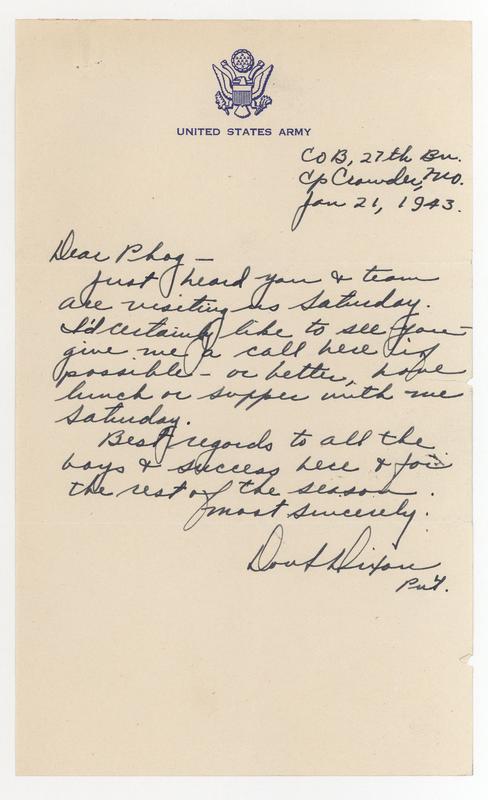 UNITED STATES ARMY
Co B, 27th Bn.
Cp Crowder, Mo.
Jan 21, 1943.
Dear Phog —
Just heard you & team
are visiting us Saturday.
I'd certainly like to see you —
give me a call here if
possible — or better, have
lunch or supper with me
Saturday.
Best regards to all the
boys & success here & for
the rest of the season.
Most sincerely.
Dixon
Pvt.